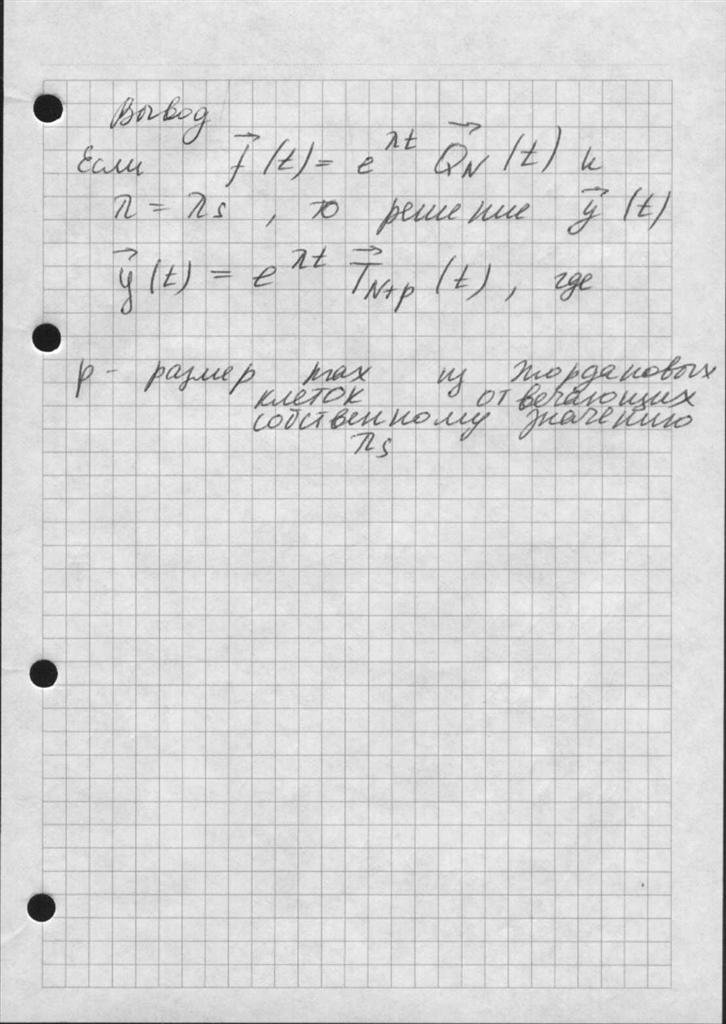 Вывод
Если $\vec{f}(t) = e^{\lambda t} \vec{Q}_N(t)$ и
$\lambda = \lambda_s$, то решение $\vec{y}(t)$
$\vec{y}(t) = e^{\lambda t} \vec{T}_{N+p}(t)$, где
p - размер max из жордановых
клеток отвечающих
собственному значению
$\lambda_s$